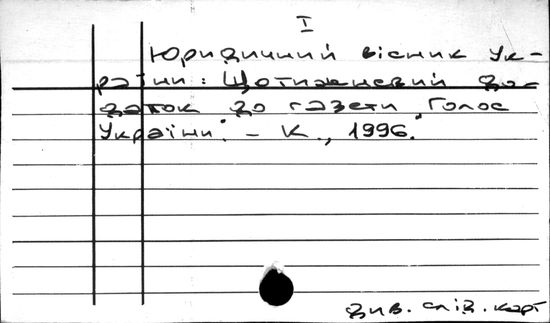 I
Юридичний вісник Ук-
раїни: Щотижневий до-
даток до газети "Голос
України". – К., 1996.
див. слід. карт